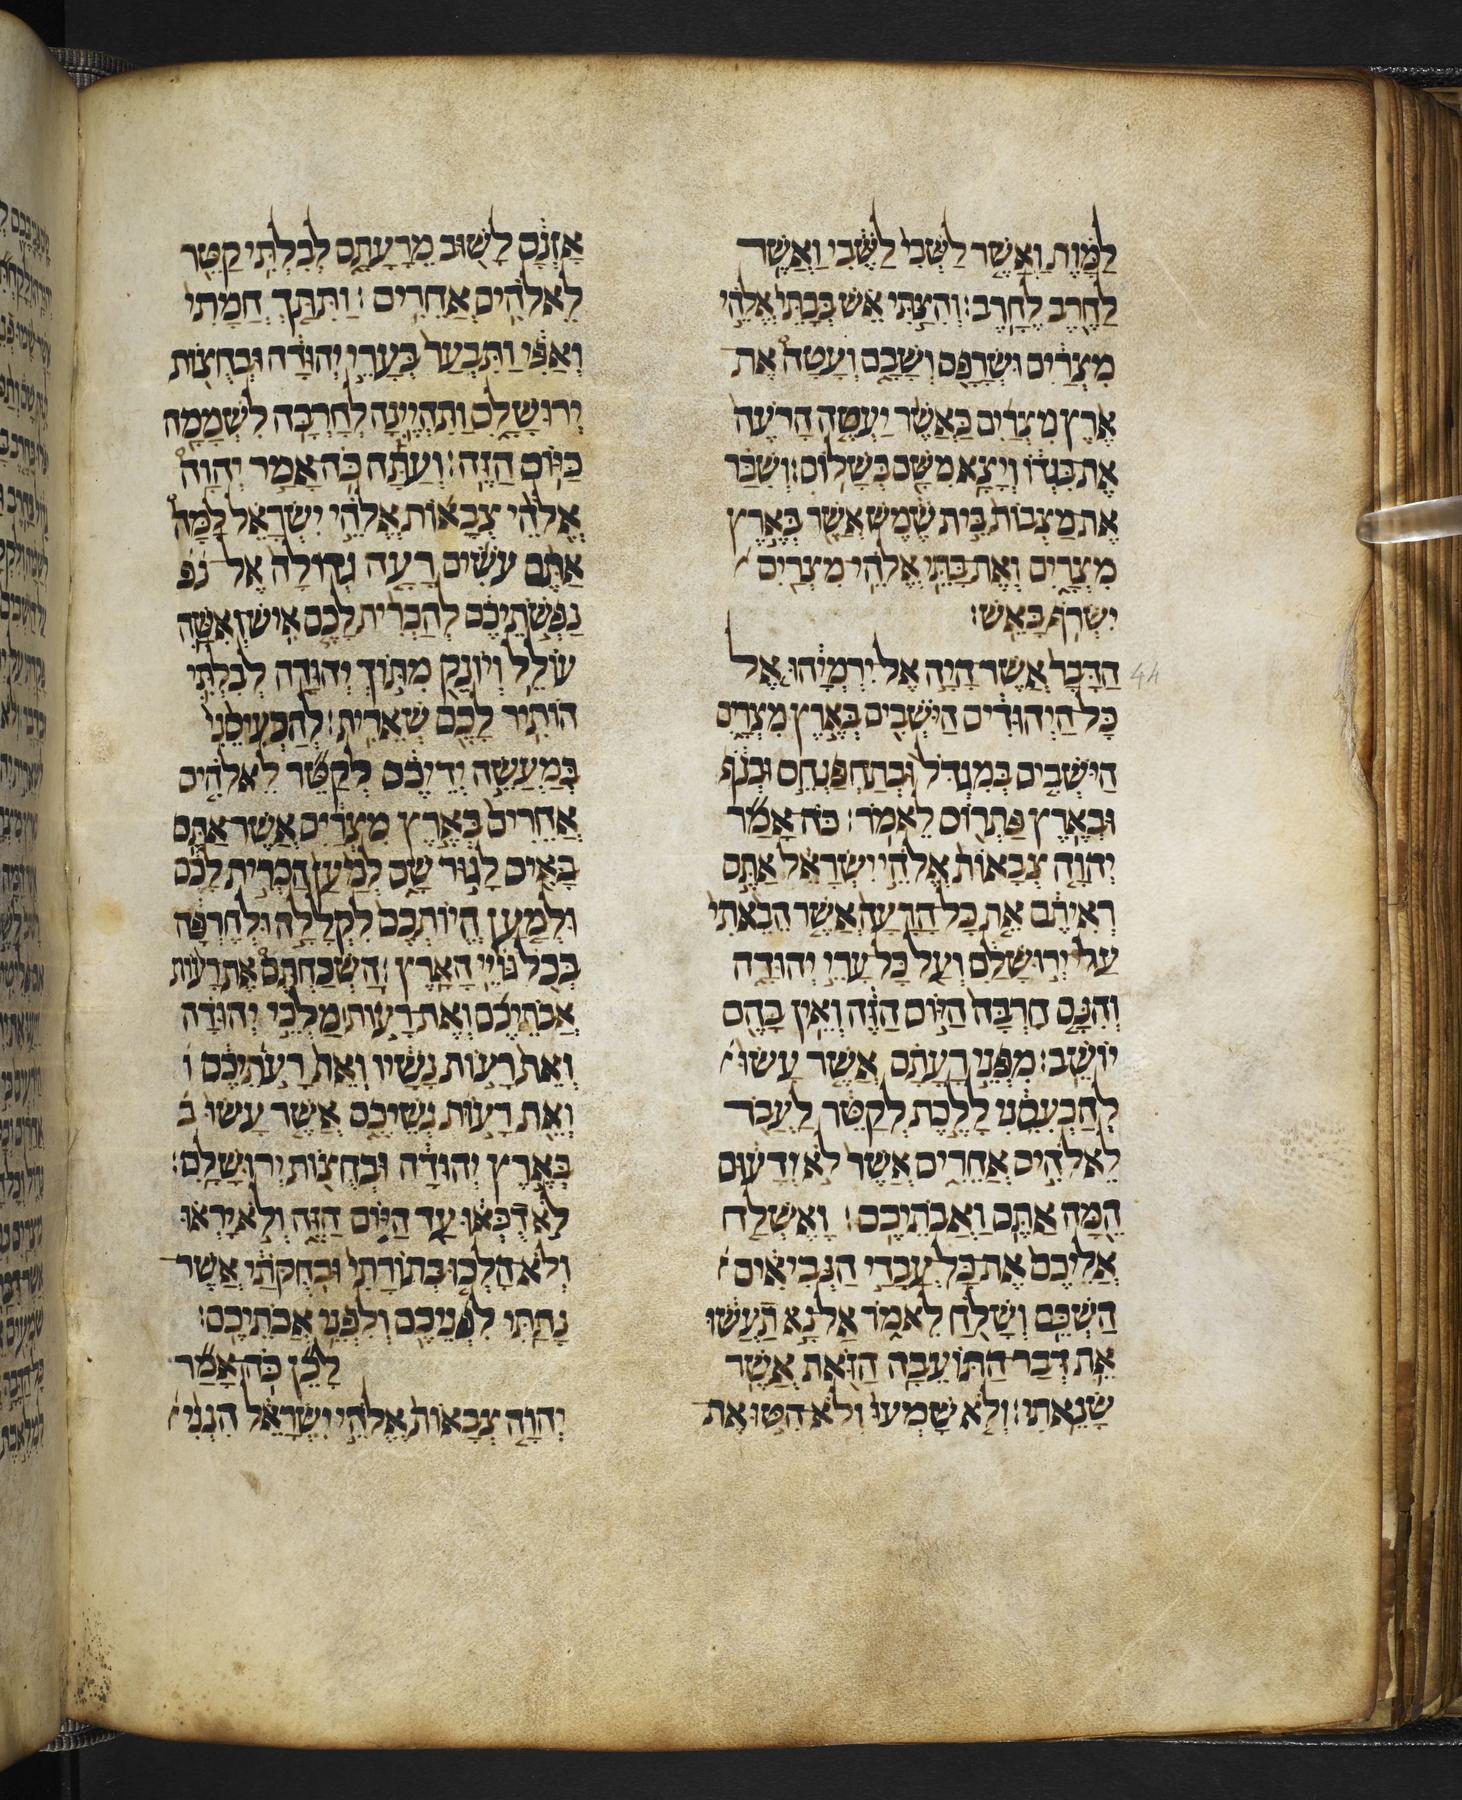 לַמָּ֔וֶת וַאֲשֶׁ֤ר לַשְּׁבִי֙ לַשֶּׁ֔בִי וַאֲשֶׁ֥ר
לַחֶ֖רֶב לֶחָֽרֶב׃ וְהִצַּ֣תִּי אֵ֗שׁ בְּבָתֵּי֙ אֱלֹהֵ֣י
מִצְרַ֔יִם וּשְׂרָפָ֖ם וְשָׁבָ֑ם וְעָטָה֩ אֶת
אֶ֨רֶץ מִצְרַ֜יִם כַּאֲשֶׁ֨ר יַעְטֶ֤ה הָרֹעֶה֙
אֶת בִּגְד֔וֹ וְיָצָ֥א מִשָּׁ֖ם בְּשָׁלֽוֹם׃ וְשִׁבַּ֗ר
אֶת מַצְּבוֹת֙ בֵּ֣ית שֶׁ֔מֶשׁ אֲשֶׁ֖ר בְּאֶ֣רֶץ
מִצְרָ֑יִם וְאֶת בָּתֵּ֥י אֱלֹהֵֽי מִצְרַ֖יִם
יִשְׂרֹ֥ף בָּאֵֽשׁ׃
הַדָּבָר֙ אֲשֶׁ֣ר הָיָ֣ה אֶֽל יִרְמְיָ֔הוּ אֶ֚ל
כָּל הַיְּהוּדִ֔ים הַיֹּשְׁבִ֖ים בְּאֶ֣רֶץ מִצְרָ֑יִם
הַיֹּשְׁבִ֤ים בְּמִגְדֹּל֙ וּבְתַחְפַּנְחֵ֣ס וּבְנֹ֔ף
וּבְאֶ֥רֶץ פַּתְר֖וֹס לֵאמֹֽר׃ כֹּה אָמַ֞ר
יְהוָ֤ה צְבָאוֹת֙ אֱלֹהֵ֣י יִשְׂרָאֵ֔ל אַתֶּ֣ם
רְאִיתֶ֗ם אֵ֤ת כָּל הָֽרָעָה֙ אֲשֶׁ֤ר הֵבֵ֙אתִי֙
עַל יְר֣וּשָׁלִַ֔ם וְעַ֖ל כָּל עָרֵ֣י יְהוּדָ֑ה
וְהִנָּ֤ם חָרְבָּה֙ הַיּ֣וֹם הַזֶּ֔ה וְאֵ֥ין בָּהֶ֖ם
יוֹשֵֽׁב׃ מִפְּנֵ֣י רָעָתָ֗ם אֲשֶׁ֤ר עָשׂוּ֙
לְהַכְעִסֵ֔נִי לָלֶ֣כֶת לְקַטֵּ֔ר לַעֲבֹ֖ד
לֵאלֹהִ֣ים אֲחֵרִ֑ים אֲשֶׁר֙ לֹ֣א יְדָע֔וּם
הֵ֖מָּה אַתֶּ֥ם וַאֲבֹתֵיכֶֽם׃ וָאֶשְׁלַ֤ח
אֲלֵיכֶם֙ אֶת כָּל עֲבָדַ֣י הַנְּבִיאִ֔ים
הַשְׁכֵּ֥ם וְשָׁלֹ֖חַ לֵאמֹ֑ר אַל נָ֣א תַעֲשׂ֗וּ
אֵ֛ת דְּבַר הַתּוֹעֵבָ֥ה הַזֹּ֖את אֲשֶׁ֥ר
שָׂנֵֽאתִי׃ וְלֹ֤א שָֽׁמְעוּ֙ וְלֹא הִטּ֣וּ אֶת
אָזְנָ֔ם לָשׁ֖וּב מֵרָֽעָתָ֑ם לְבִלְתִּ֥י קַטֵּ֖ר
לֵאלֹהִ֥ים אֲחֵרִֽים׃ וַתִּתַּ֤ךְ חֲמָתִי֙
וְאַפִּ֔י וַתִּבְעַר֙ בְּעָרֵ֣י יְהוּדָ֔ה וּבְחֻצ֖וֹת
יְרוּשָׁלִָ֑ם וַתִּהְיֶ֛ינָה לְחָרְבָּ֥ה לִשְׁמָמָ֖ה
כַּיּ֥וֹם הַזֶּֽה׃ וְעַתָּ֡ה כֹּֽה אָמַ֣ר יְהוָה֩
אֱלֹהֵ֨י צְבָא֜וֹת אֱלֹהֵ֣י יִשְׂרָאֵ֗ל לָמָה֩
אַתֶּ֨ם עֹשִׂ֜ים רָעָ֤ה גְדוֹלָה֙ אֶל נפ
נַפְשֹׁ֣תֵיכֶ֔ם לְהַכְרִ֨ית לָכֶ֧ם אִישׁ וְאִשָּׁ֛ה
עוֹלֵ֥ל וְיוֹנֵ֖ק מִתּ֣וֹךְ יְהוּדָ֑ה לְבִלְתִּ֛י
הוֹתִ֥יר לָכֶ֖ם שְׁאֵרִֽית׃ לְהַכְעִיסֵ֙נִי֙
בְּמַעֲשֵׂ֣ה יְדֵיכֶ֔ם לְקַטֵּר֙ לֵאלֹהִ֣ים
אֲחֵרִ֔ים בְּאֶ֣רֶץ מִצְרַ֔יִם אֲשֶׁר אַתֶּ֥ם
בָּאִ֖ים לָג֣וּר שָׁ֑ם לְמַ֙עַן֙ הַכְרִ֣ית לָכֶ֔ם
וּלְמַ֤עַן הֱיֽוֹתְכֶם֙ לִקְלָלָ֣ה וּלְחֶרְפָּ֔ה
בְּכֹ֖ל גּוֹיֵ֥י הָאָֽרֶץ׃ הַֽשְׁכַחְתֶּם֩ אֶת רָע֨וֹת
אֲבֹתֵיכֶ֜ם וְאֶת רָע֣וֹת מַלְכֵ֣י יְהוּדָ֗ה
וְאֵת֙ רָע֣וֹת נָשָׁ֔יו וְאֵת֙ רָעֹ֣תֵיכֶ֔ם ו
וְאֵ֖ת רָע֣וֹת נְשֵׁיכֶ֑ם אֲשֶׁ֤ר עָשׂוּ֙ ב
בְּאֶ֣רֶץ יְהוּדָ֔ה וּבְחֻצ֖וֹת יְרוּשָׁלִָֽם׃
לֹ֣א דֻכְּא֔וּ עַ֖ד הַיּ֣וֹם הַזֶּ֑ה וְלֹ֣א יָרְא֗וּ
וְלֹֽא הָלְכ֤וּ בְתֽוֹרָתִי֙ וּבְחֻקֹּתַ֔י אֲשֶׁר
נָתַ֥תִּי לִפְנֵיכֶ֖ם וְלִפְנֵ֥י אֲבֹתֵיכֶֽם׃
לָכֵ֗ן כֹּֽה אָמַ֞ר
יְהוָ֤ה צְבָאוֹת֙ אֱלֹהֵ֣י יִשְׂרָאֵ֔ל הִנְנִ֨י
44